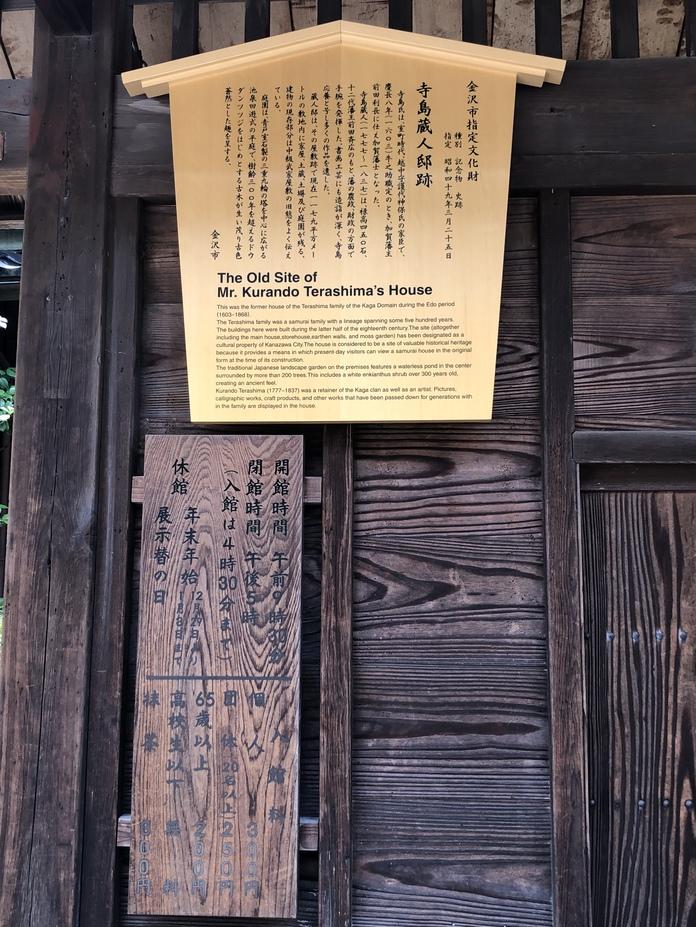 金沢市指定文化財
種別 記念物 史跡
指定 昭和四十九年三月二十五日
寺島蔵人邸跡
寺島氏は、室町時代、越中守護代神保氏の家臣で、
慶長八年(一六〇三)牛之助職定のとき、加賀藩主
前田利長に仕え加賀藩士となった。
寺島蔵人(一七七七~一八三七)は、禄高四五〇石、
十二代藩主前田斉広のもと、藩の農政、財政の方面で
手腕を発揮した。書画工芸にも造詣が深く、寺島
応養と号し多くの作品を遺した。
蔵人邸は、その屋敷跡で現在(一一七九平方メー
トルの敷地内に家屋、土蔵、土塀及び庭園が残る。
建物の現存部分は中級武家屋敷の旧態をよく伝え
ている。
庭園は、青戸室石製の三重九輪の塔を中心に広がる
池泉回遊式の平庭で、樹齢三〇〇年を超えるドウ
ダンツツジをはじめとする古木が生い茂り古色
蒼然とした趣を呈する。
金沢市
The Old Site of
Mr. Kurando Terashima's House
This was the former house of the Terashima family of the Kaga Domain during the Edo period
(1603–1868).
The Terashima family was a samurai family with a lineage spanning some five hundred years.
The buildings here were built during the latter half of the eighteenth century.The site (altogether
including the main house,storehouse,earthen walls, and moss garden) has been designated as a
cultural property of Kanazawa City.The house is considered to be a site of valuable historical heritage
because it provides a means in which present-day visitors can view a samurai house in the original
form at the time of its construction.
The traditional Japanese landscape garden on the premises features a waterless pond in the center
surrounded by more than 200 trees.This includes a white enkianthus shrub over 300 years old,
creating an ancient feel.
Kurando Terashima (1777–1837) was a retainer of the Kaga clan as well as an artist. Pictures,
calligraphic works, craft products, and other works that have been passed down for generations with
in the family are displayed in the house.
開館時間 午前9時30分
閉館時間 午後5時
(入館は4時30分まで)
休館 年末年始 12月29日より 1月3日まで
展示替の日
入館料
個人 300円
団体(20名以上)250円
65歳以上 200円
高校生以下 無料
抹茶 300円